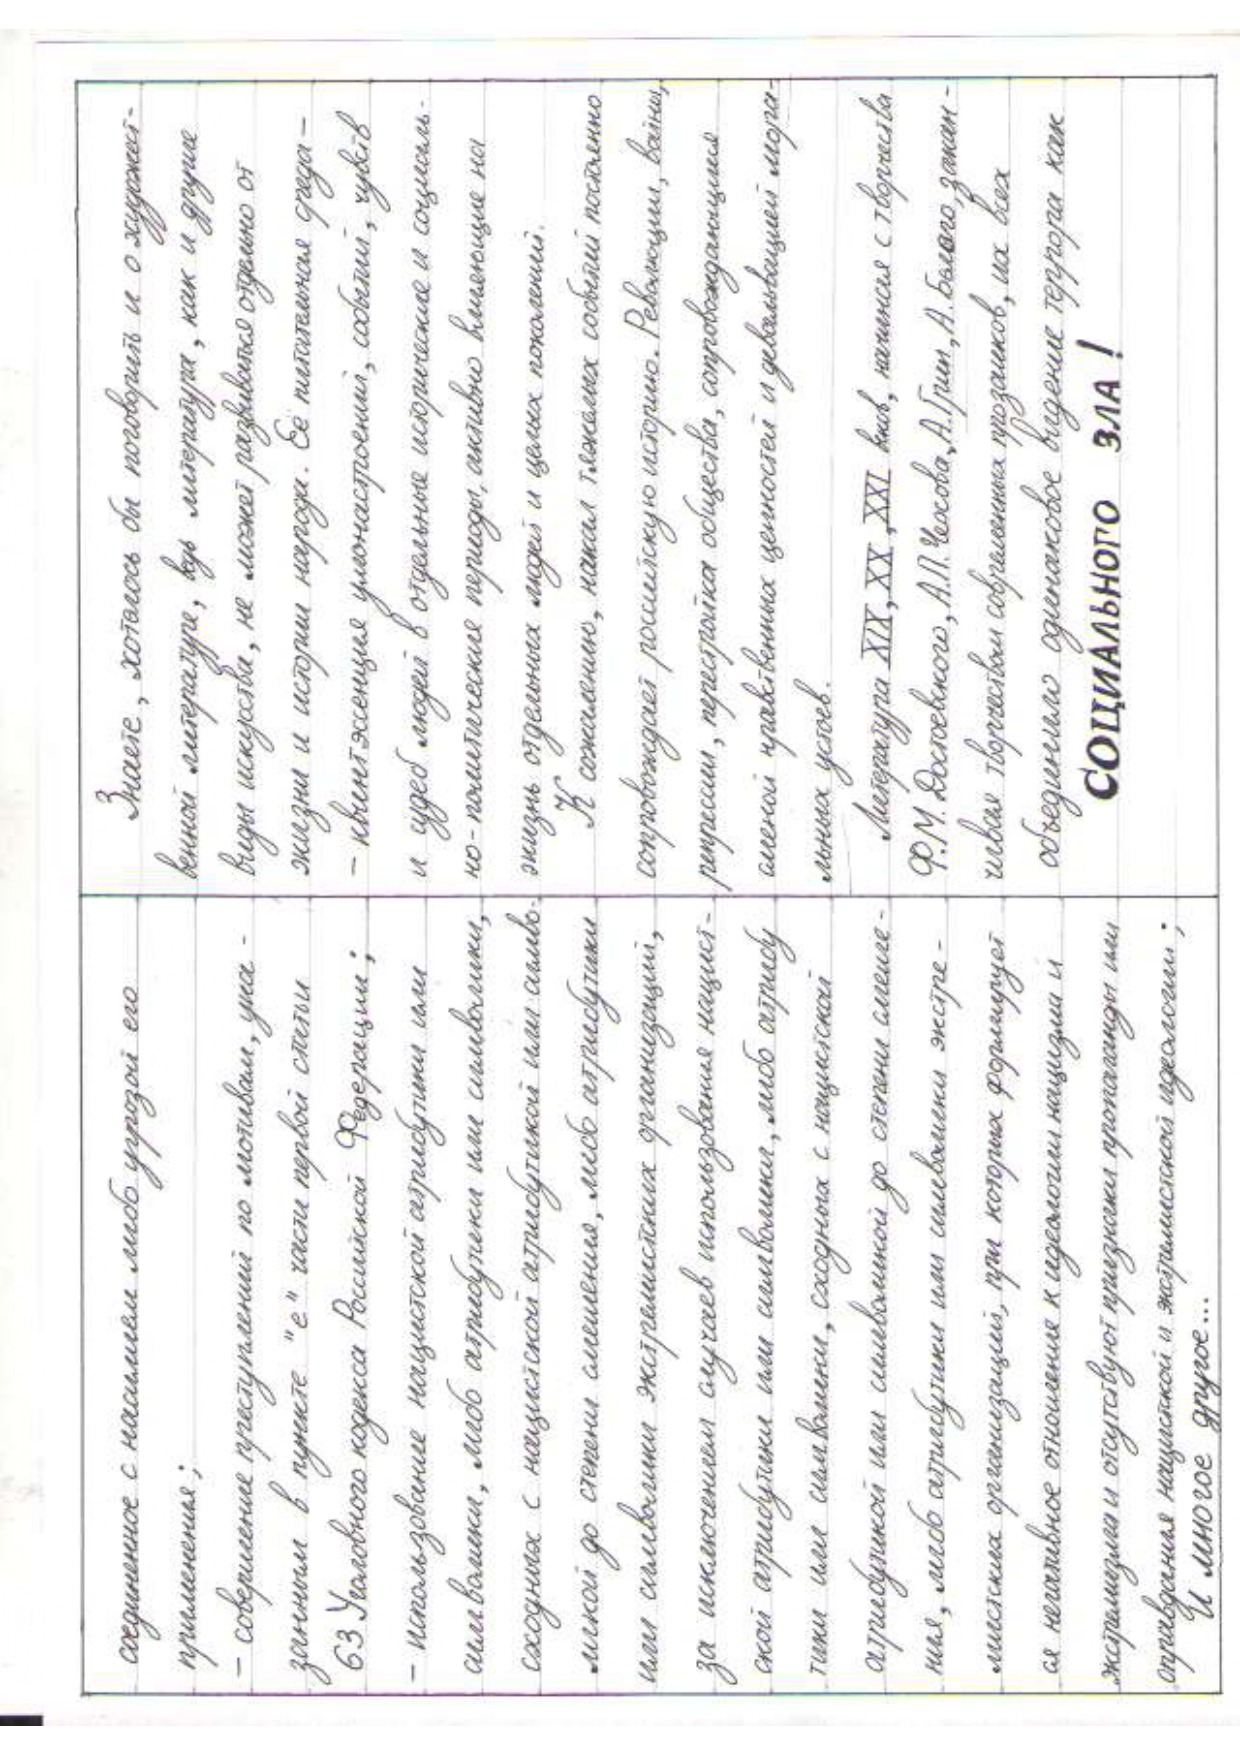 соединенное с насилием либо угрозой его
применения;
– совершение преступлений по мотивам, ука-
занным в пункте "е" части первой статьи
63 Уголовного кодекса Российской Федерации;
– использование нацистской атрибутики или
символики, либо атрибутики или символики,
сходных с нацистской атрибутикой или симво-
ликой до степени смешения, либо атрибутики
или символики экстремистских организаций,
за исключением случаев использования нацист-
ской атрибутики или символики, либо атрибу
тики или символики, сходных с нацистской
атрибутикой или символикой до степени смеше-
ния, либо атрибутики или символики экстре-
мистских организаций, при которых формирует
ся негативное отношение к идеологии нацизма и
экстремизма и отсутствуют признаки пропаганды или
оправдания нацистской и экстремистской идеологии;
И многое другое...
Знаете, хотелось бы поговорить и о художест-
венной литературе, ведь литература, как и другие
виды искусства, не может развиваться отдельно от
жизни и истории народа. Её питательная среда –
– квинтэссенция умонастроений, событий, чувств
и судеб людей в отдельные исторические и социаль-
но-политические периоды, активно влияющие на
жизнь отдельных людей и целых поколений.
К сожалению, накал тяжелых событий постоянно
сопровождает российскую историю. Революции, войны,
репрессии, перестройка общества, сопровождающиеся
сменой нравственных ценностей и девальвацией мора-
льных устоев.
Литература XIX, XX, XXI веков, начиная с творчества
Ф.М. Достоевского, А.П. Чехова, А. Грин, А. Белого, закан-
чивая творчеством современных прозаиков, их всех
объединило одинаковое видение террора как
СОЦИАЛЬНОГО ЗЛА!